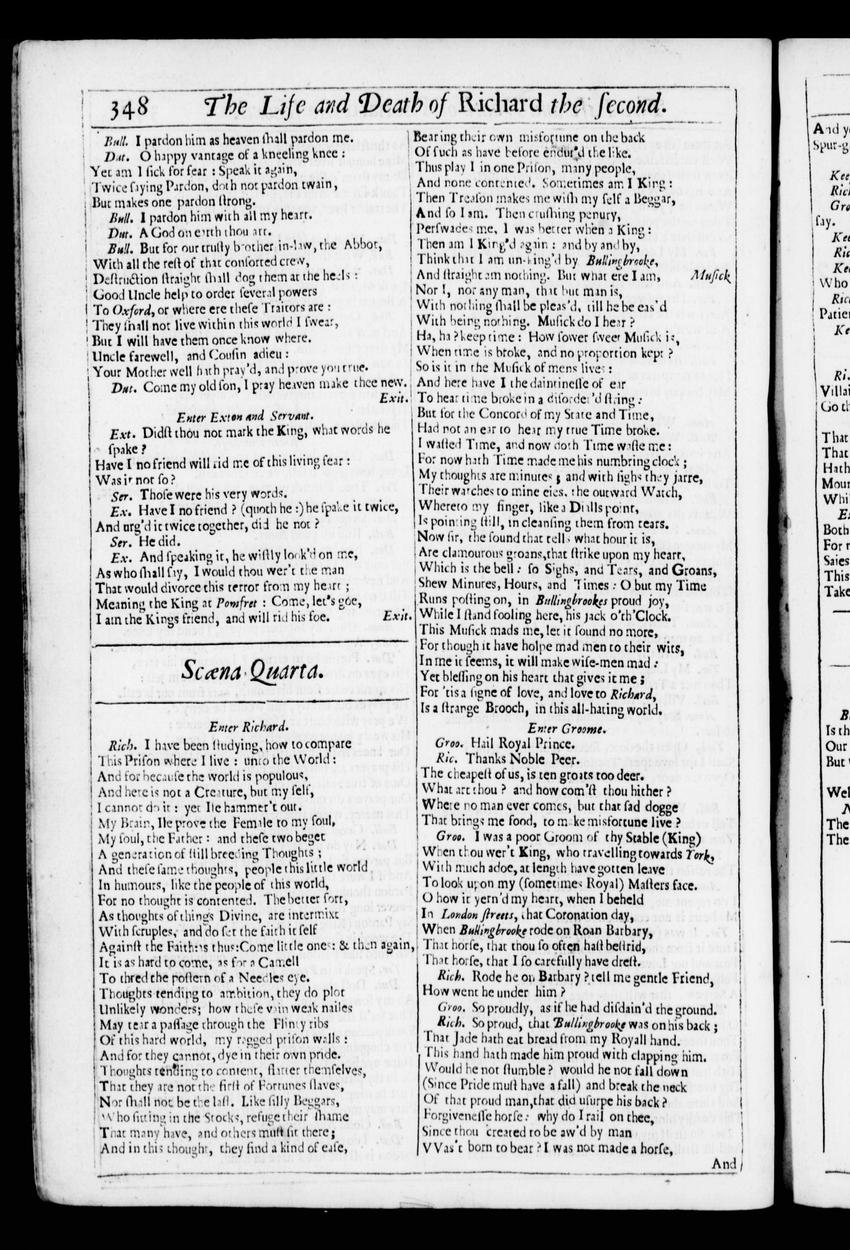 348 The Life and Death of Richard the ſecond.
Bull. I pardon him as heaven ſhall pardon me.
Dut. O happy vantage of a kneeling knee :
Yet am I ſick for fear : Speak it again,
Twice ſaying Pardon, doth not pardon twain,
But makes one pardon ſtrong.
Bull. I pardon him with all my heart.
Dut. A God on earth thou art.
Bull. But for our truſty brother in-law, the Abbot,
With all the reſt of that conſorted crew,
Deſtruction ſtraight ſhall dog them at the heels :
Good Uncle help to order ſeveral powers
To Oxford, or where ere theſe Traitors are :
They ſhall not live within this world I ſwear,
But I will have them once know where.
Uncle farewell, and Couſin adieu :
Your Mother well hath pray'd, and prove you true.
Dut. Come my old ſon, I pray heaven make thee new.
Exit.
Enter Exton and Servant.
Ext. Didſt thou not mark the King, what words he
ſpake ?
Have I no friend will rid me of this living fear :
Was it not ſo ?
Ser. Thoſe were his very words.
Ex. Have I no friend ? (quoth he :) he ſpake it twice,
And urg'd it twice together, did he not ?
Ser. He did.
Ex. And ſpeaking it, he wiſtly look'd on me,
As who ſhall ſay, I would thou wer't the man
That would divorce this terror from my heart ;
Meaning the King at Pomfret : Come, let's goe,
I am the Kings friend, and will rid his foe. Exit.
Scæna Quarta.
Enter Richard.
Rich. I have been ſtudying, how to compare
This Priſon where I live : unto the World :
And for becauſe the world is populous,
And here is not a Creature, but my ſelf,
I cannot do it : yet Ile hammer't out.
My Brain, Ile prove the Female to my ſoul,
My ſoul, the Father : and theſe two beget
A generation of ſtill breeding Thoughts ;
And theſe ſame thoughts, people this little world
In humours, like the people of this world,
For no thought is contented. The better ſort,
As thoughts of things Divine, are intermixt
With ſcruples, and do ſet the faith it ſelf
Againſt the Faith: as thus: Come little ones : & then again,
It is as hard to come, as for a Camell
To thred the poſtern of a Needles eye.
Thoughts tending to ambition, they do plot
Unlikely wonders; how theſe vain weak nailes
May tear a paſſage through the Flinty ribs
Of this hard world, my ragged priſon walls :
And for they cannot, dye in their own pride.
Thoughts tending to content, flatter themſelves,
That they are not the firſt of Fortunes ſlaves,
Nor ſhall not be the laſt. Like ſilly Beggars,
Who ſitting in the Stocks, refuge their ſhame
That many have, and others muſt ſit there ;
And in this thought, they find a kind of eaſe,
Bearing their own misfortune on the back
Of ſuch as have before endur'd the like.
Thus play I in one Priſon, many people,
And none contented. Sometimes am I King :
Then Treaſon makes me wiſh my ſelf a Beggar,
And ſo I am. Then cruſhing penury,
Perſwades me, I was better when a King :
Then am I King'd again : and by and by,
Think that I am un-king'd by Bullingbrooke,
And ſtraight am nothing. But what ere I am, Muſick
Nor I, nor any man, that but man is,
With nothing ſhall be pleas'd, till he be eas'd
With being nothing. Muſick do I hear ?
Ha, ha ? keep time : How ſower ſweet Muſick is,
When time is broke, and no proportion kept ?
So is it in the Muſick of mens lives :
And here have I the daintineſſe of ear
To hear time broke in a diſorder'd ſtring :
But for the Concord of my State and Time,
Had not an ear to hear my true Time broke.
I waſted Time, and now doth Time waſte me :
For now hath Time made me his numbring clock ;
My thoughts are minutes ; and with ſighs they jarre,
Their watches to mine eies, the outward Watch,
Whereto my finger, like a Dialls point,
Is pointing ſtill, in cleanſing them from tears.
Now ſir, the ſound that tells what hour it is,
Are clamourous groans, that ſtrike upon my heart,
Which is the bell : ſo Sighs, and Tears, and Groans,
Shew Minutes, Hours, and Times : O but my Time
Runs poſting on, in Bullingbrookes proud joy,
While I ſtand fooling here, his jack o'th'Clock.
This Muſick mads me, let it ſound no more,
For though it have holpe mad men to their wits,
In me it ſeems, it will make wiſe-men mad :
Yet bleſſing on his heart that gives it me ;
For 'tis a ſigne of love, and love to Richard,
Is a ſtrange Brooch, in this all-hating world.
Enter Groome.
Groo. Hail Royal Prince.
Ric. Thanks Noble Peer.
The cheapeſt of us, is ten groats too deer.
What art thou ? and how com'ſt thou hither ?
Where no man ever comes, but that ſad dogge
That brings me food, to make misfortune live ?
Groo. I was a poor Groom of thy Stable (King)
When thou wer't King, who travelling towards York,
With much adoe, at length have gotten leave
To look upon my (ſometimes Royal) Maſters face.
O how it yern'd my heart, when I beheld
In London ſtreets, that Coronation day,
When Bullingbrooke rode on Roan Barbary,
That horſe, that thou ſo often haſt beſtrid,
That horſe, that I ſo carefully have dreſt.
Rich. Rode he on Barbary ? tell me gentle Friend,
How went he under him ?
Groo. So proudly, as if he had diſdain'd the ground.
Rich. So proud, that Bullingbrooke was on his back ;
That Jade hath eat bread from my Royall hand.
This hand hath made him proud with clapping him.
Would he not ſtumble ? would he not fall down
(Since Pride muſt have a fall) and break the neck
Of that proud man, that did uſurpe his back ?
Forgiveneſſe horſe : why do I rail on thee,
Since thou created to be aw'd by man
VVas't born to bear ? I was not made a horſe,
And
And y
Spur-g
Kee
Rich
Gro
ſay.
Kee
Ric
Kee
Who
Rich
Patie
Ke
Ri.
Villai
Go th
That
That
Hath
Mour
Whi
E
Both
For
Saies
This
Take
B
Is th
Our
But
Wel
N
The
The